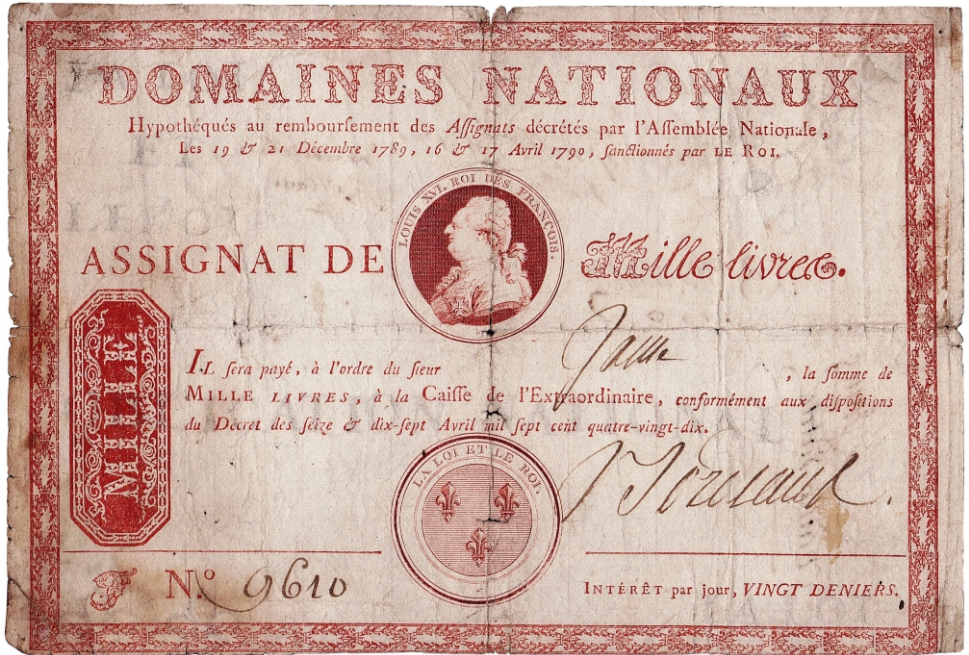 DOMAINES NATIONAUX
Hypothéqués au rembourſement des Aſſignats décrétés par l'Aſſemblée Nationale,
Les 19 & 21 Décembre 1789, 16 & 17 Avril 1790, ſanctionnés par LE ROI.
LOUIS XVI. ROI DES FRANÇOIS.
ASSIGNAT DE Mille livres.
MILLE
IL ſera payé, à l'ordre du ſieur , la ſomme de
MILLE LIVRES, à la Caiſſe de l'Extraordinaire, conformément aux diſpoſitions
du Décret des ſeize & dix-ſept Avril mil ſept cent quatre-vingt-dix.
LA LOI ET LE ROI.
N.o 9610
INTÉRÊT par jour, VINGT DENIERS.